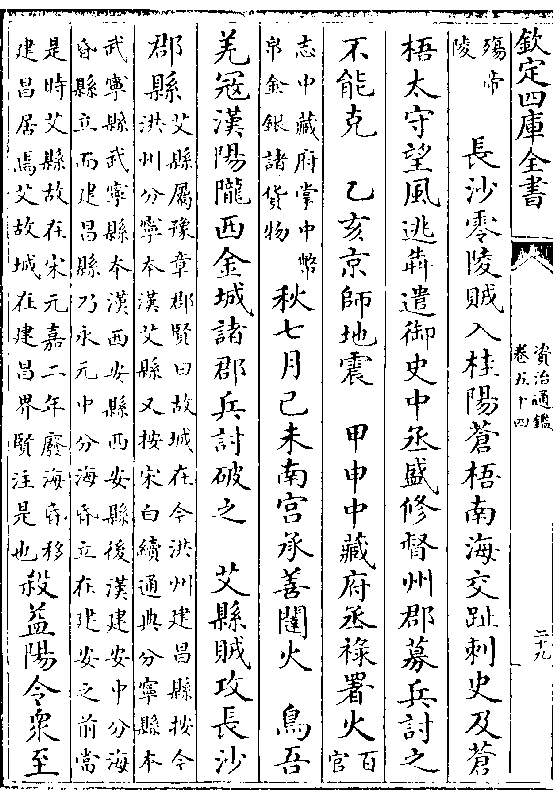 欽定四庫全書
資治通鑑
卷五十四
二十九
殤帝
陵
長沙零陵賊入桂陽蒼梧南海交趾刺史及蒼
梧太守望風逃犇遣御史中丞盛修督州郡募兵討之
不能克 乙亥京師地震 甲申中藏府丞祿署火百
官
志中藏府掌中幣
帛金銀諸貨物
秋七月己未南宫承善闥火 鳥吾
羌寇漢陽隴西金城諸郡兵討破之 艾縣賊攻長沙
郡縣
艾縣屬豫章郡賢曰故城在今洪州建昌縣按今
洪州分寧本漢艾縣又按宋白續通典分寧縣本
武寧縣武寧縣本漢西安縣西安縣後漢建安中分海
昏縣立而建昌縣乃永元中分海昏立在建安之前當
是時艾縣故在宋元嘉二年廢海昏移
建昌居焉艾故城在建昌界賢注是也
殺益陽令衆至